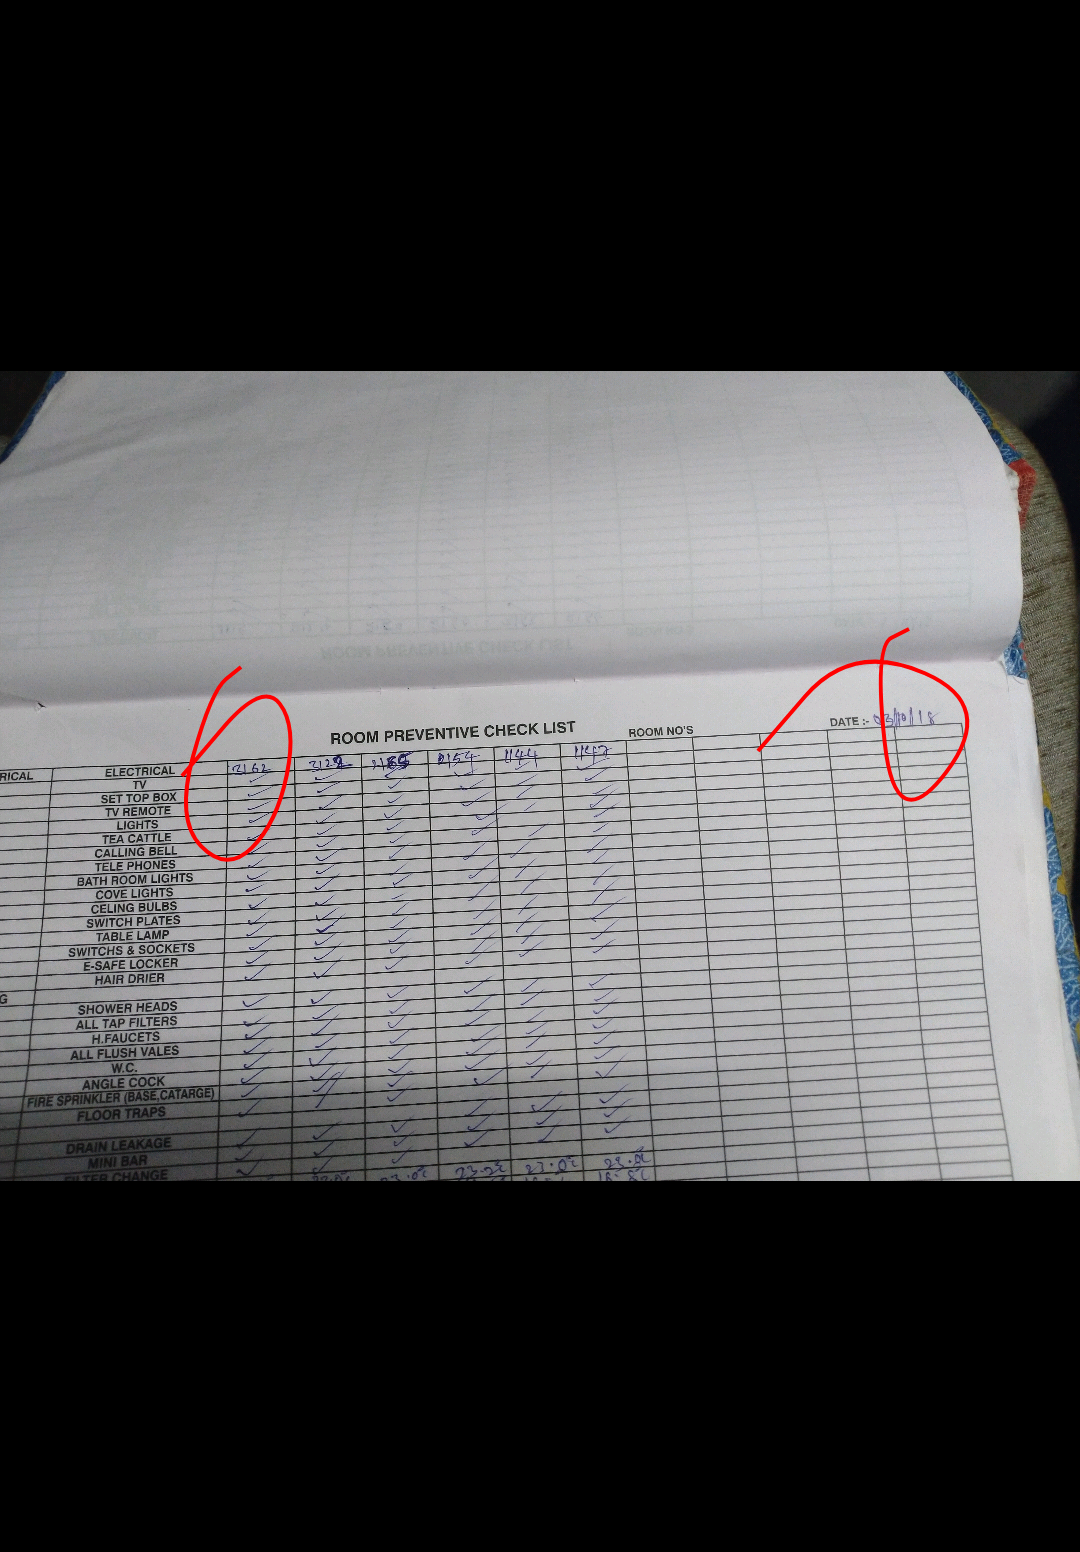 ROOM PREVENTIVE CHECK LIST
ROOM NO'S
DATE :- 03/10/18
RICAL ELECTRICAL 2162 2154 1144 1147
TV
SET TOP BOX
TV REMOTE
LIGHTS
TEA CATTLE
CALLING BELL
TELE PHONES
BATH ROOM LIGHTS
COVE LIGHTS
CELING BULBS
SWITCH PLATES
TABLE LAMP
SWITCHS & SOCKETS
E-SAFE LOCKER
HAIR DRIER
G
SHOWER HEADS
ALL TAP FILTERS
H.FAUCETS
ALL FLUSH VALES
W.C.
ANGLE COCK
FIRE SPRINKLER (BASE,CATARGE)
FLOOR TRAPS
DRAIN LEAKAGE
MINI BAR
FILTER CHANGE